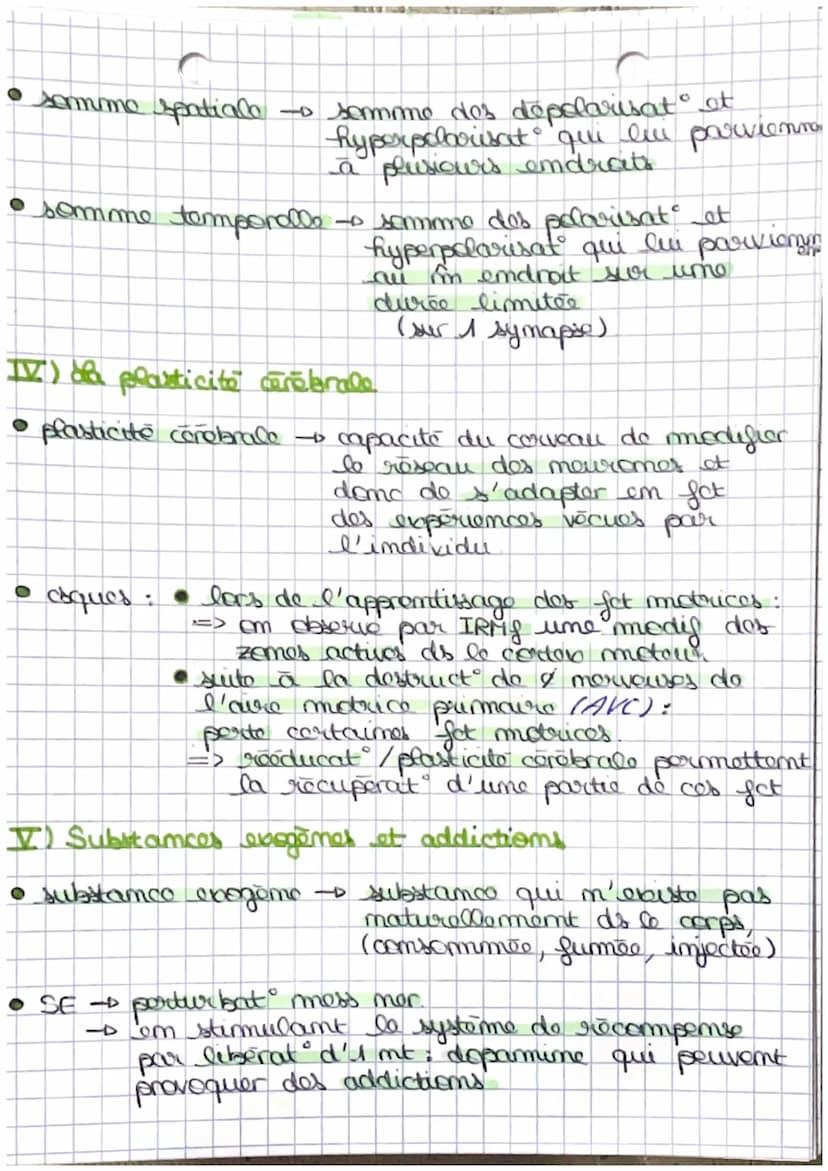 • somme spatiale → somme des dépolarisat° et
hyperpolarisat° qui lui parvienn
à plusieurs endroits
• somme temporelle → somme des polarisat° et
hyperpolarisat° qui lui parvienn
au m̂ endroit sur une
durée limitée
(sur 1 synapse)
IV) La plasticité cérébrale
• plasticité cérébrale → capacité du cerveau de modifier
le réseau des neurones et
donc de s'adapter en fct
des expériences vécues par
l'individu
• csques : • lors de l'apprentissage des fct motrices :
=> on observe par IRMf une modif des
zones actives ds le cortex moteur
• suite à la destruct° de ȼ nerveuses de
l'aire motrice primaire (AVC) :
perte certaines fct motrices.
=> rééducat° / plasticité cérébrale permettent
la récupérat° d'une partie de ces fct
V) Substances exogènes et addictions
• substance exogène → substance qui n'existe pas
naturellement ds le corps,
(consommée, fumée, injectée)
• SE → perturbat° mess ner.
→ en stimulant le système de récompense
par libérat° d'1 nt : dopamine qui peuvent
provoquer des addictions